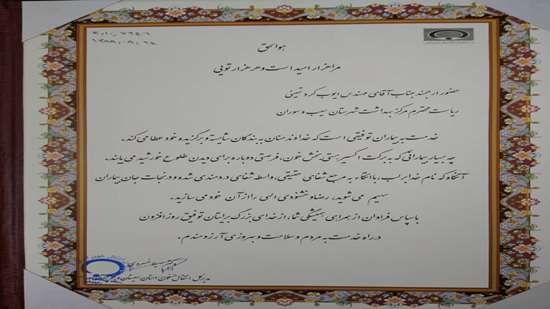 هوالحق
مرا هزار امید است و هر هزار تویی
حضور ارجمند جناب آقای مهندس ایوب کرد تمینی
ریاست محترم مرکز بهداشت شهرستان سیب و سوران
خدمت به بیماران توفیقی است که خداوند منان به بندگان شایسته و برگزیده خود عطا می کند.
چه بسیار بیمارانی که به برکت اکسیر هستی بخش خون، فرصتی دوباره برای دیدن طلوع خورشید می یابند.
آنگاه که نام خدا بر لب، با اتکاء به مرجع شفای حقیقی، واسطه شفای دردمندی شده و در نجات جان بیماران
سهیم می شوید، رضا و خشنودی الهی را از آن خود می سازید.
با سپاس فراوان از همراهی همیشگی شما، از خدای بزرگ برایتان توفیق روزافزون
در راه خدمت به مردم و سلامت و بهروزی آرزومندم.
مدیرکل انتقال خون استان سیستان و